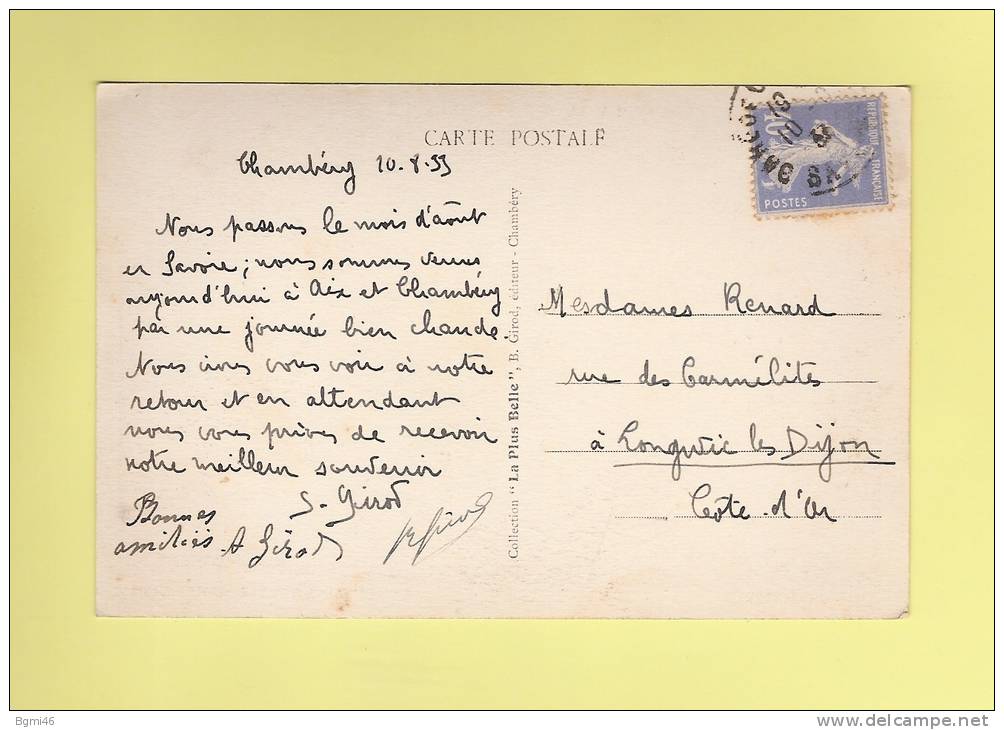 CARTE POSTALE
Chambéry 10-8-33
Nous passons le mois d'août
en Savoie; nous sommes venus
aujourd'hui à Aix et Chambéry
par une journée bien chaude.
Nous irons vous voir à notre
retour et en attendant
nous vous prions de recevoir
notre meilleur souvenir
S. Girod
Bonnes
amitiés A Girod
Collection "La Plus Belle", B. Girod, éditeur - Chambéry
REPUBLIQUE FRANÇAISE
POSTES
Mesdames Renard
rue des Carmélites
à Longvic les Dijon
Côte d'Or
Bgmi46
www.delcampe.net